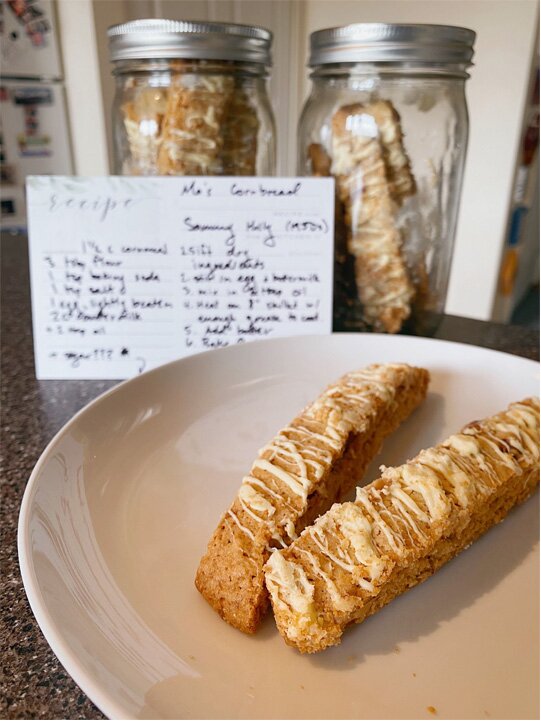 recipe
Ma's Cornbread
Sammy Hily (1950s)
1½ c cornmeal
3 tbsp flour
1 tsp baking soda
1 tsp salt
1 egg, lightly beaten
2 c buttermilk
2 tbsp oil
sugar???
1. Sift dry
ingredients
2. stir in egg & buttermilk
3. mix in oil
4. Heat on 8" skillet w/
enough grease to coat
5. Add batter
6. Bake